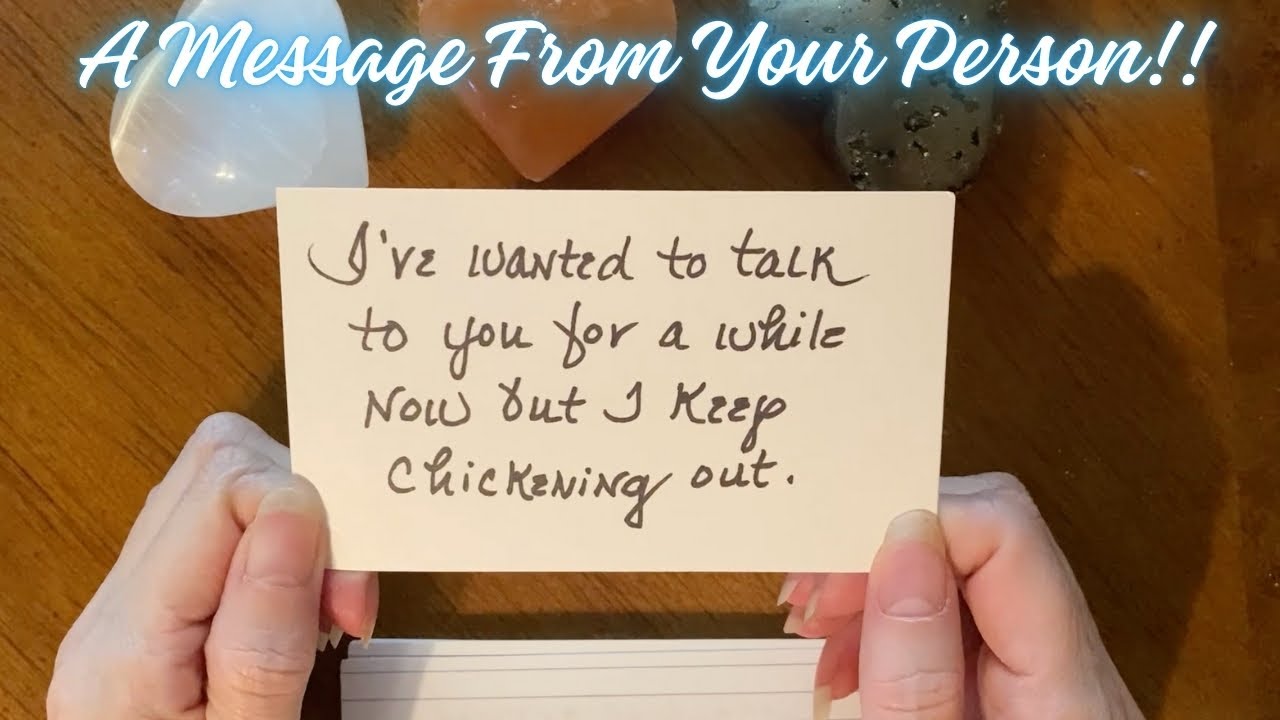 A Message From Your Person!!
I've wanted to talk
to you for a while
now but I keep
chickening out.